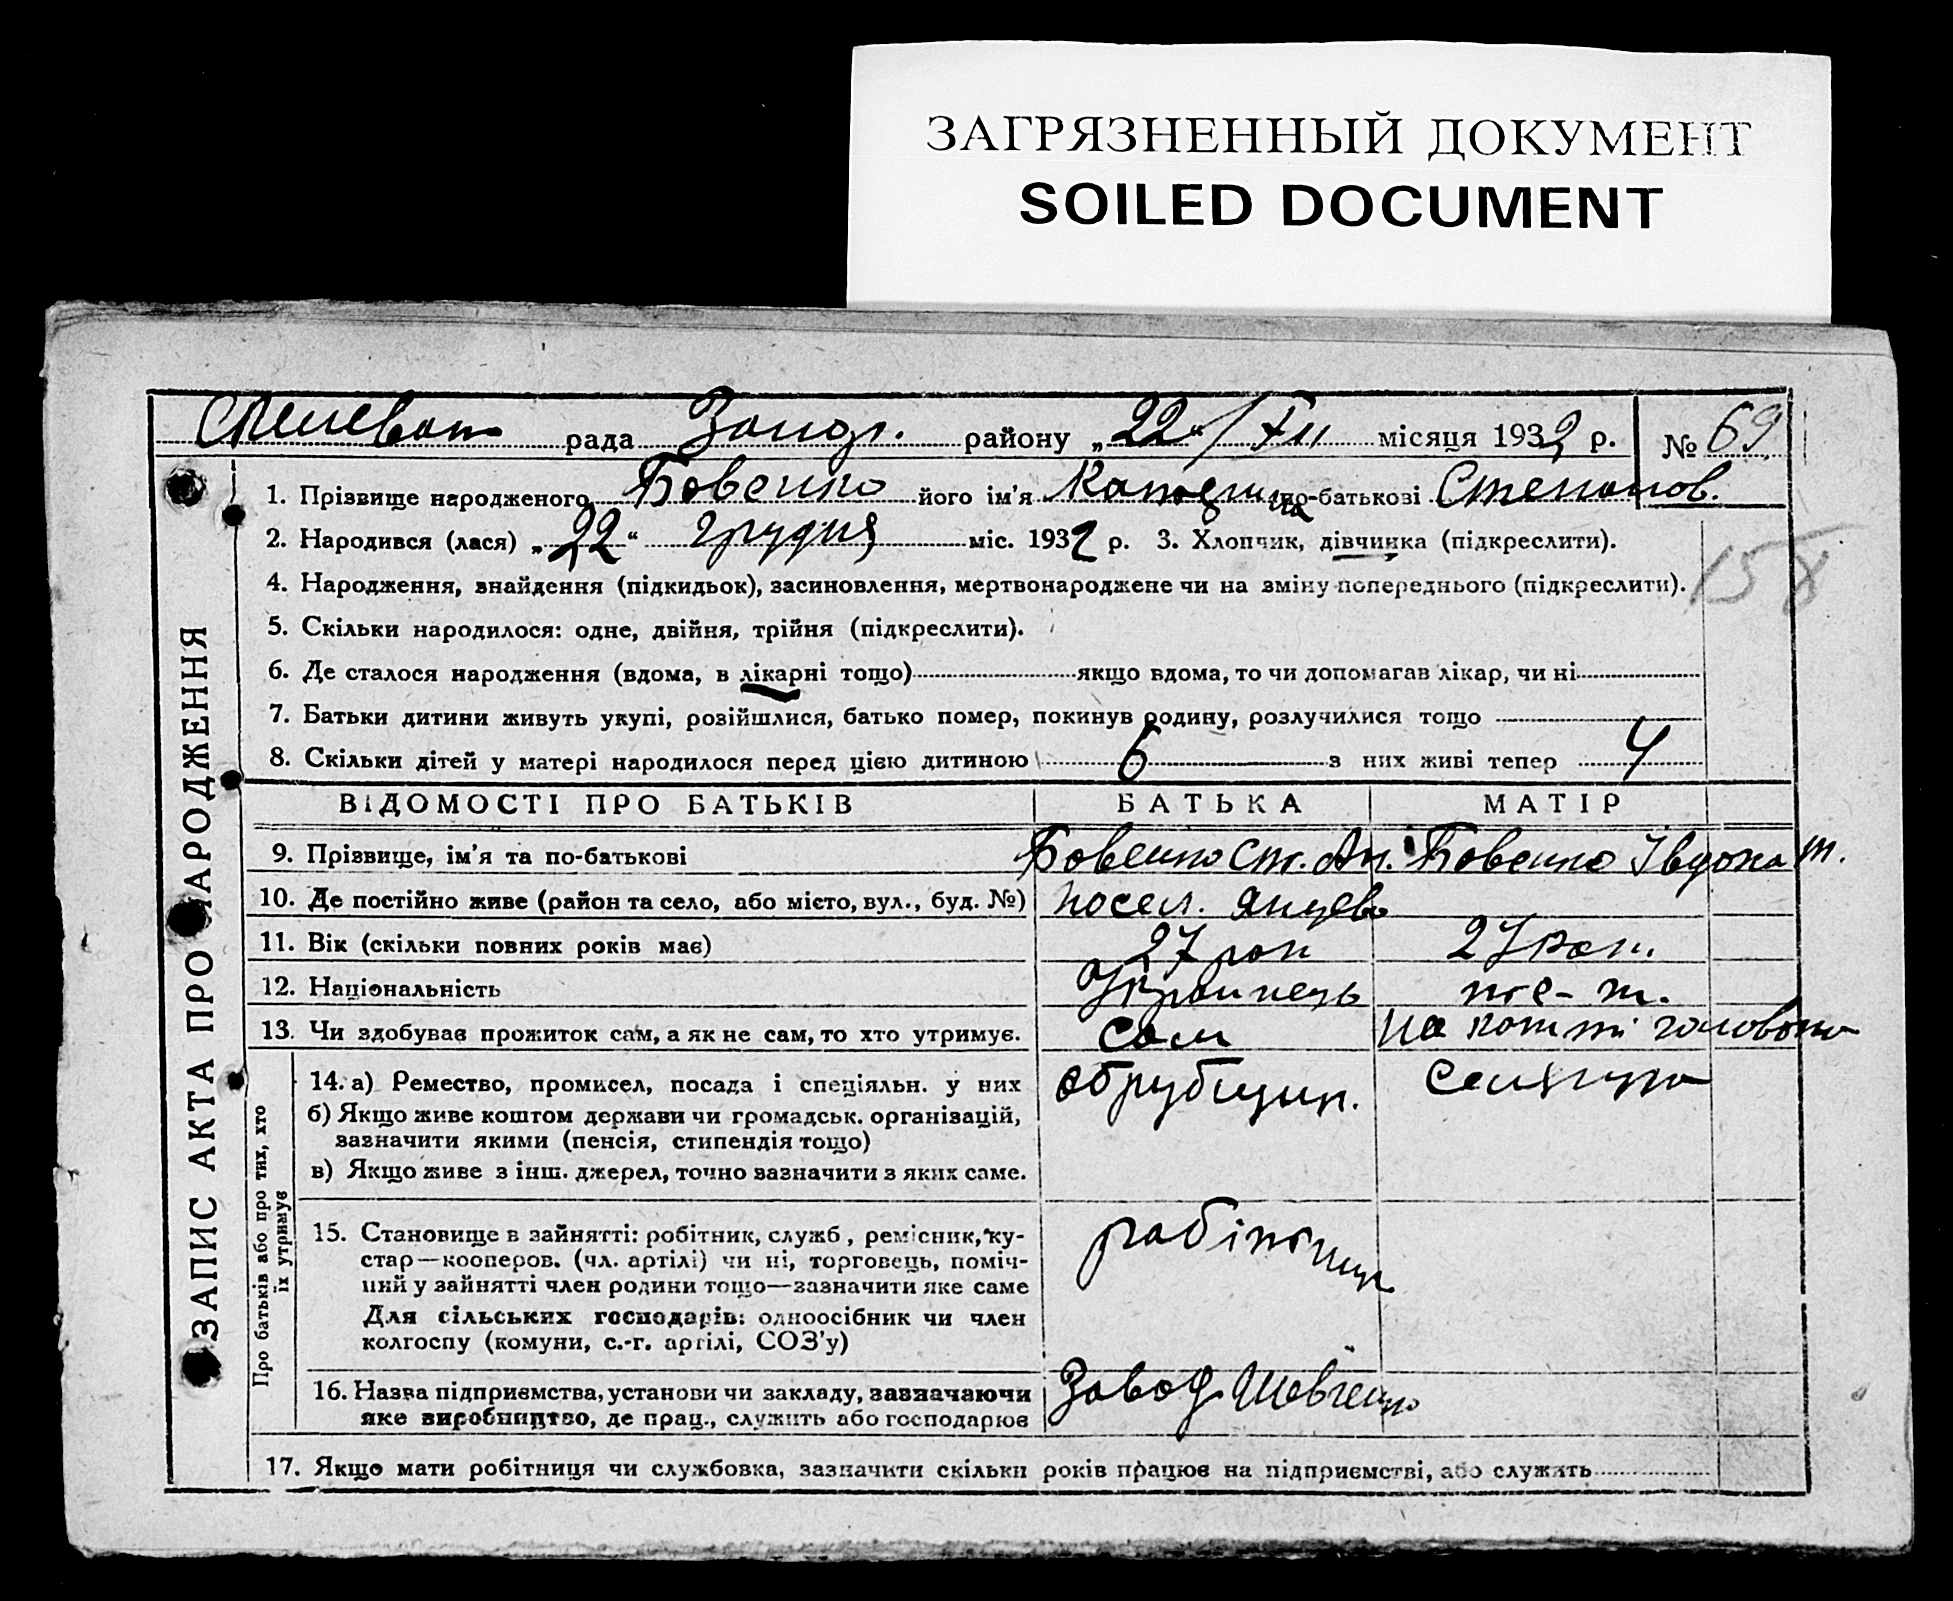 ЗАГРЯЗНЕННЫЙ ДОКУМЕНТ
SOILED DOCUMENT
рада Запор. району „22“/XII місяця 1932 р. № 69
ЗАПИС АКТА ПРО НАРОДЖЕННЯ
1. Прізвище народженого Бовенко його ім'я Катерина по-батькові Степанов.
2. Народився (лася) „22“ грудня міс. 1932 р. 3. Хлопчик, дівчинка (підкреслити).
158
4. Народження, знайдення (підкидьок), засиновлення, мертвонароджене чи на зміну попереднього (підкреслити).
5. Скільки народилося: одне, двійня, трійня (підкреслити).
6. Де сталося народження (вдома, в лікарні тощо) якщо вдома, то чи допомагав лікар, чи ні
7. Батьки дитини живуть укупі, розійшлися, батько помер, покинув родину, розлучилися тощо
8. Скільки дітей у матері народилося перед цією дитиною 6 з них живі тепер 4
ВІДОМОСТІ ПРО БАТЬКІВ БАТЬКА МАТІР
9. Прізвище, ім'я та по-батькові Бовенко Ст. Ан. Бовенко Івдока т.
10. Де постійно живе (район та село, або місто, вул., буд. №) посел. Янцево
11. Вік (скільки повних років має) 27 рок 27 рок.
12. Національність Українець те-т.
13. Чи здобував прожиток сам, а як не сам, то хто утримує. сам на кошті чоловока
Про батьків або про тих, хто їх утримує
14. а) Ремество, промисел, посада і спеціяльн. у них обрубщик. селянка
б) Якщо живе коштом держави чи громадськ. організацій,
зазначити якими (пенсія, стипендія тощо)
в) Якщо живе з інш. джерел, точно зазначити з яких саме.
15. Становище в зайнятті: робітник, служб, ремісник, ку-
стар—кооперов. (чл. артілі) чи ні, торговець, поміч-
ний у зайнятті член родини тощо—зазначити яке саме
Для сільських господарів: одноосібник чи член
колгоспу (комуни, с.-г. артілі, СОЗ'у)
робітник
16. Назва підприємства, установи чи закладу, зазначаючи
яке виробництво, де прац., служить або господарює
Завод Шевченко
17. Якщо мати робітниця чи службовка, зазначити скільки років працює на підприємстві, або служить